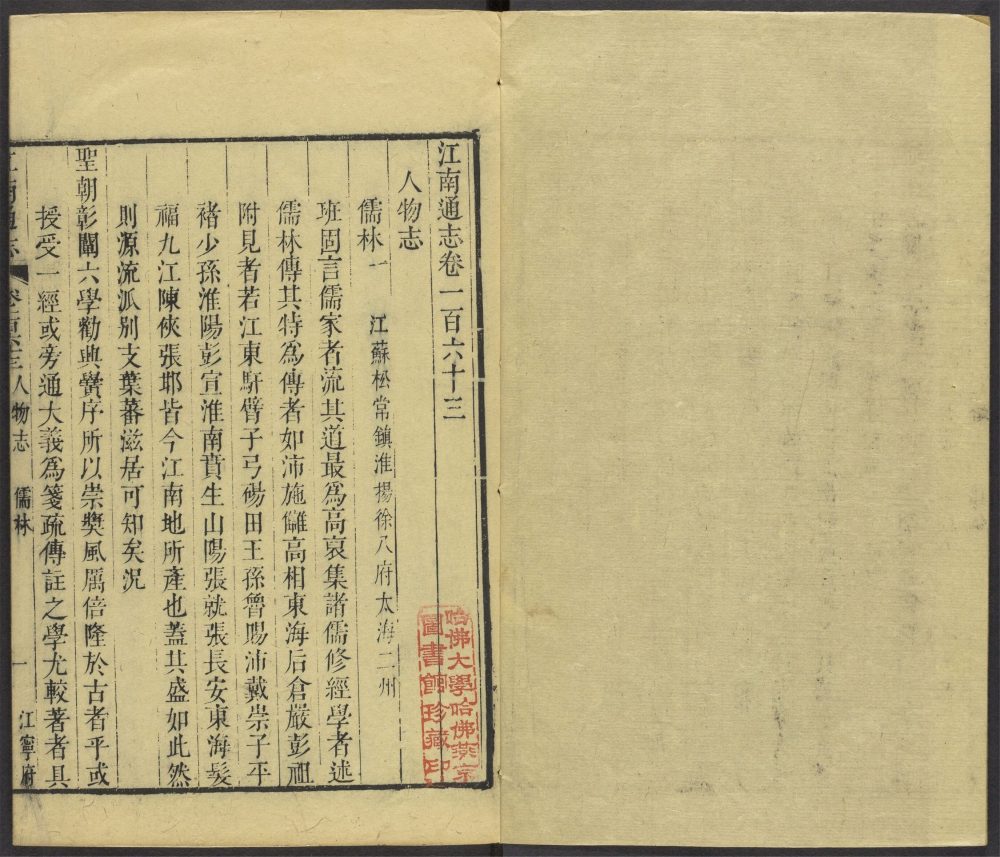 江南通志卷一百六十三
人物志
儒林一 江蘇松常鎮淮揚徐八府太海二州
班固言儒家者流其道最爲高裒集諸儒修經學者述
儒林傳其特爲傳者如沛施讎高相東海后倉嚴彭祖
附見者若江東馯臂子弓碭田王孫魯賜沛戴崇子平
褚少孫淮陽彭宣淮南賁生山陽張就張長安東海髮
福九江陳俠張邯皆今江南地所產也蓋其盛如此然
則源流派别支葉蕃滋居可知矣況
聖朝彰闡六學勸典黌序所以崇獎風厲倍隆於古者乎或
授受一經或旁通大義爲箋疏傳註之學尤較著者具
江南通志 卷一百六十三 人物志 儒林 一 江寧府
哈佛大學哈佛燕京
圖書館珍藏印